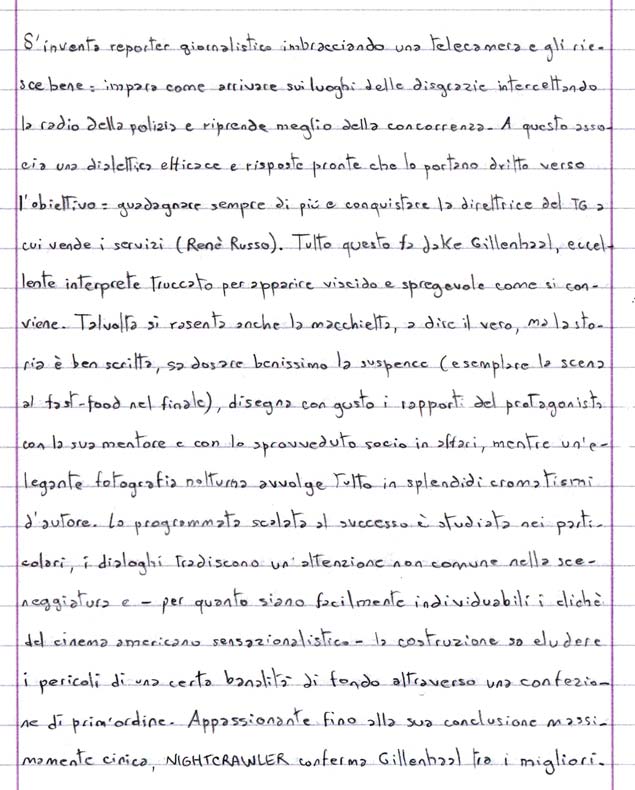 S'inventa reporter giornalistico imbracciando una telecamera e gli rie-
sce bene: impara come arrivare sui luoghi delle disgrazie intercettando
la radio della polizia e riprende meglio della concorrenza. A questo asso-
cia una dialettica efficace e risposte pronte che lo portano dritto verso
l'obiettivo: guadagnare sempre di più e conquistare la direttrice del TG a
cui vende i servizi (Renè Russo). Tutto questo fa Jake Gillenhaal, eccel-
lente interprete truccato per apparire viscido e spregevole come si con-
viene. Talvolta si rasenta anche la macchietta, a dire il vero, ma la sto-
ria è ben scritta, sa dosare benissimo la suspence (esemplare la scena
al fast-food nel finale), disegna con gusto i rapporti del protagonista
con la sua mentore e con lo sprovveduto socio in affari, mentre un'e-
legante fotografia notturna avvolge tutto in splendidi cromatismi
d'autore. La programmata scalata al successo è studiata nei parti-
colari, i dialoghi tradiscono un'attenzione non comune nella sce-
neggiatura e - per quanto siano facilmente individuabili i clichè
del cinema americano sensazionalistico - la costruzione sa eludere
i pericoli di una certa banalità di fondo attraverso una confezio-
ne di prim'ordine. Appassionante fino alla sua conclusione massi-
mamente cinica, NIGHTCRAWLER conferma Gillenhaal tra i migliori.